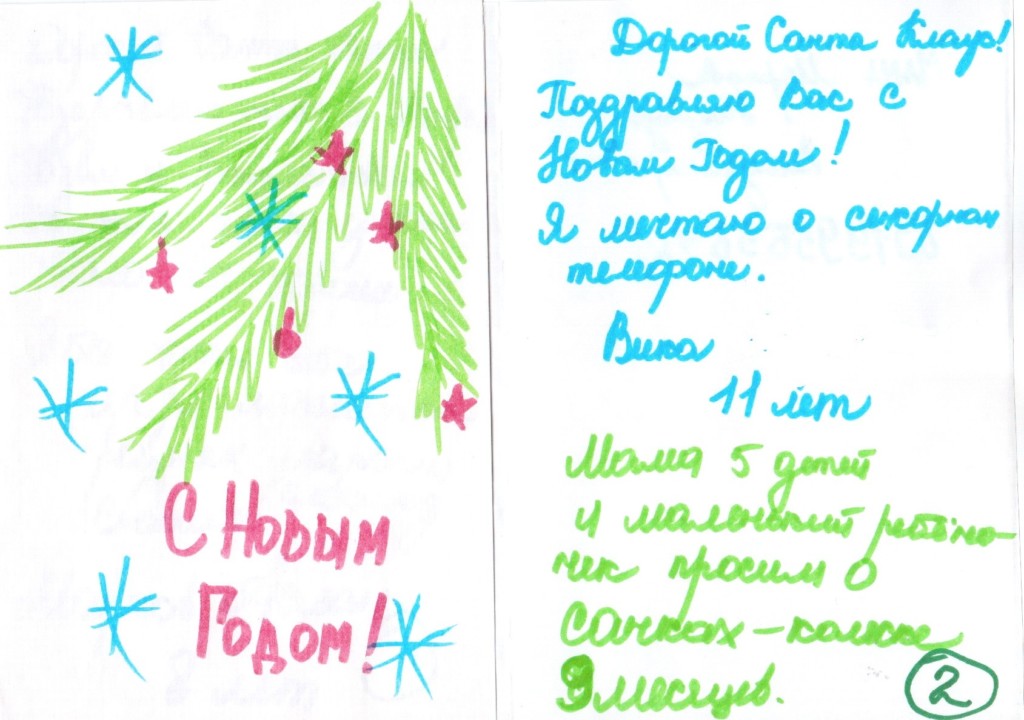 С Новым
Годом!
Дорогой Санта Клаус!
Поздравляю Вас с
Новым Годом!
Я мечтаю о
телефоне.
Вика
11 лет
Мама 5 детей
и маленький ребёно-
чек просим о
санках-коляске
9 месяцев.
2